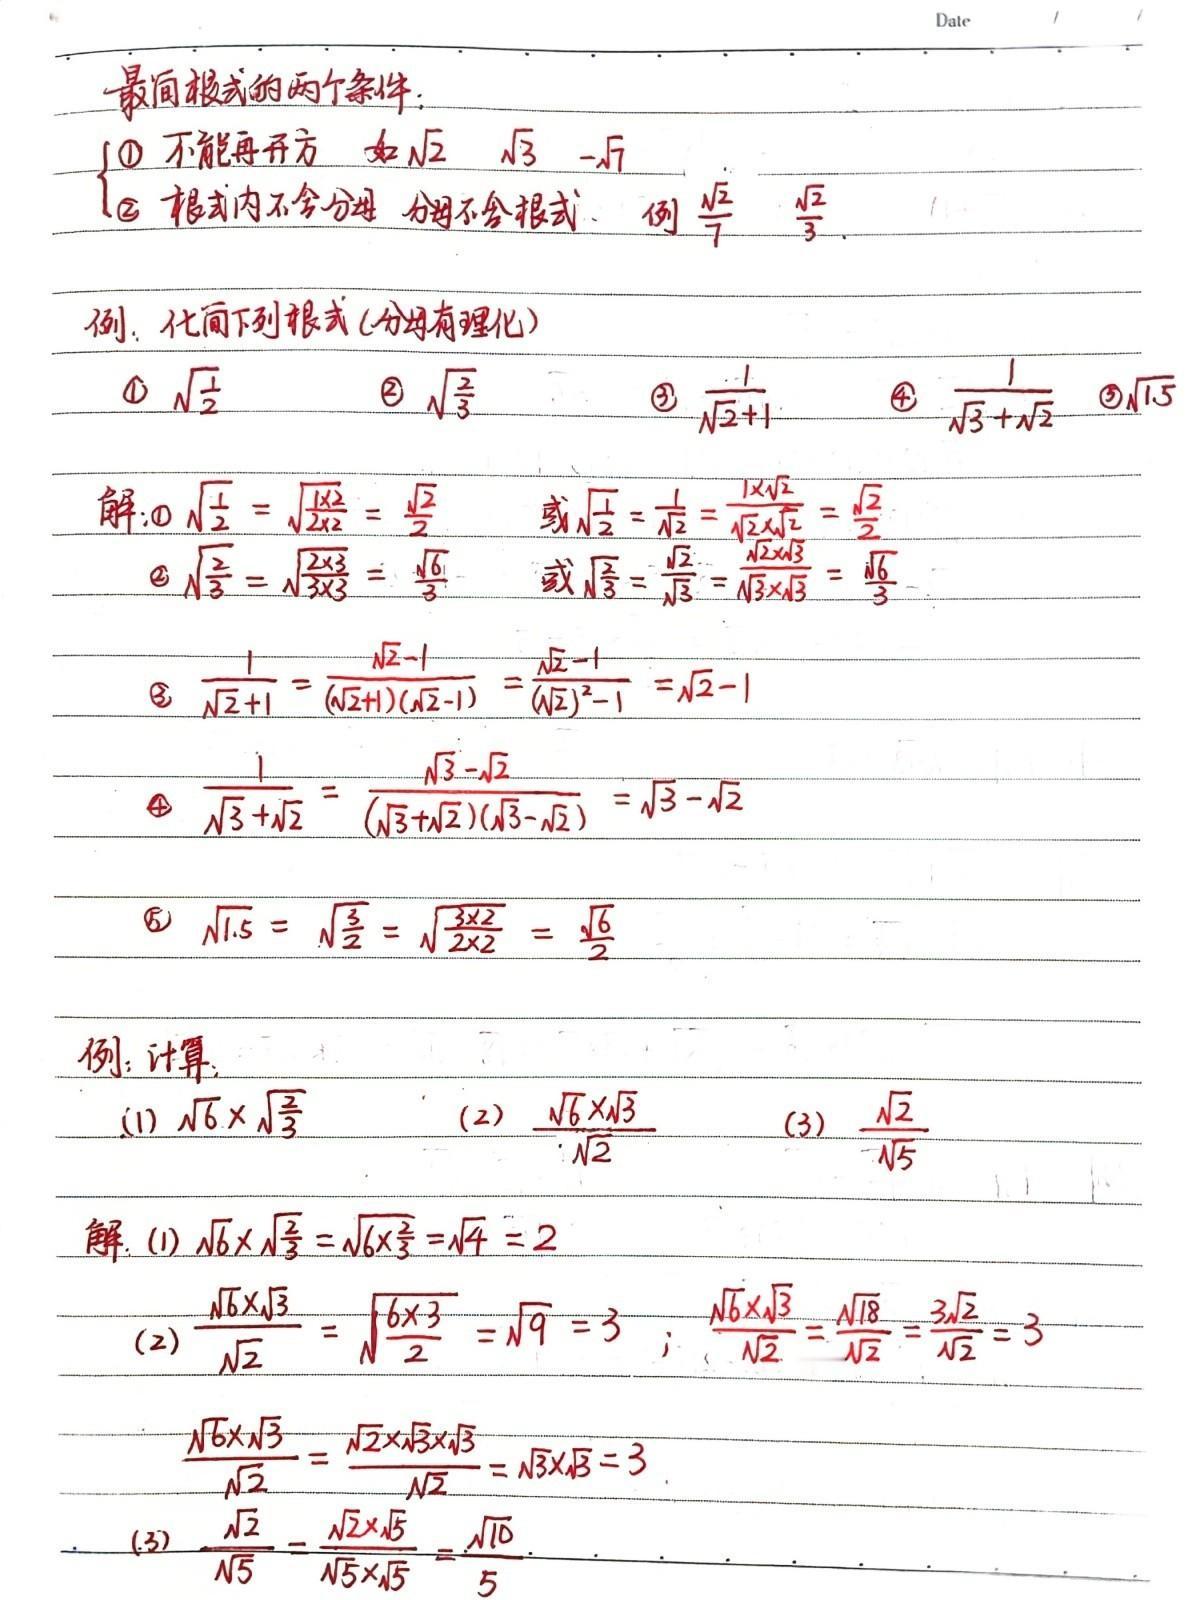 Date / /
最简根式的两个条件:
① 不能再开方 如 √2 √3 -√7
② 根式内不含分母 分母不含根式. 例 √2/7 √2/3.
例: 化简下列根式(分母有理化)
① √(1/2) ② √(2/3) ③ 1/(√2+1) ④ 1/(√3+√2) ⑤ √1.5
解:① √(1/2) = √((1×2)/(2×2)) = √2/2 或 √(1/2) = 1/√2 = (1×√2)/(√2×√2) = √2/2
② √(2/3) = √((2×3)/(3×3)) = √6/3 或 √(2/3) = √2/√3 = (√2×√3)/(√3×√3) = √6/3
③ 1/(√2+1) = (√2-1)/((√2+1)(√2-1)) = (√2-1)/((√2)²-1) = √2-1
④ 1/(√3+√2) = (√3-√2)/((√3+√2)(√3-√2)) = √3-√2
⑤ √1.5 = √(3/2) = √((3×2)/(2×2)) = √6/2
例: 计算:
(1) √6×√(2/3) (2) (√6×√3)/√2 (3) √2/√5
解. (1) √6×√(2/3) = √(6×2/3) = √4 = 2
(2) (√6×√3)/√2 = √((6×3)/2) = √9 = 3 ; (√6×√3)/√2 = √18/√2 = 3√2/√2 = 3
(√6×√3)/√2 = (√2×√3×√3)/√2 = √3×√3 = 3
(3) √2/√5 = (√2×√5)/(√5×√5) = √10/5